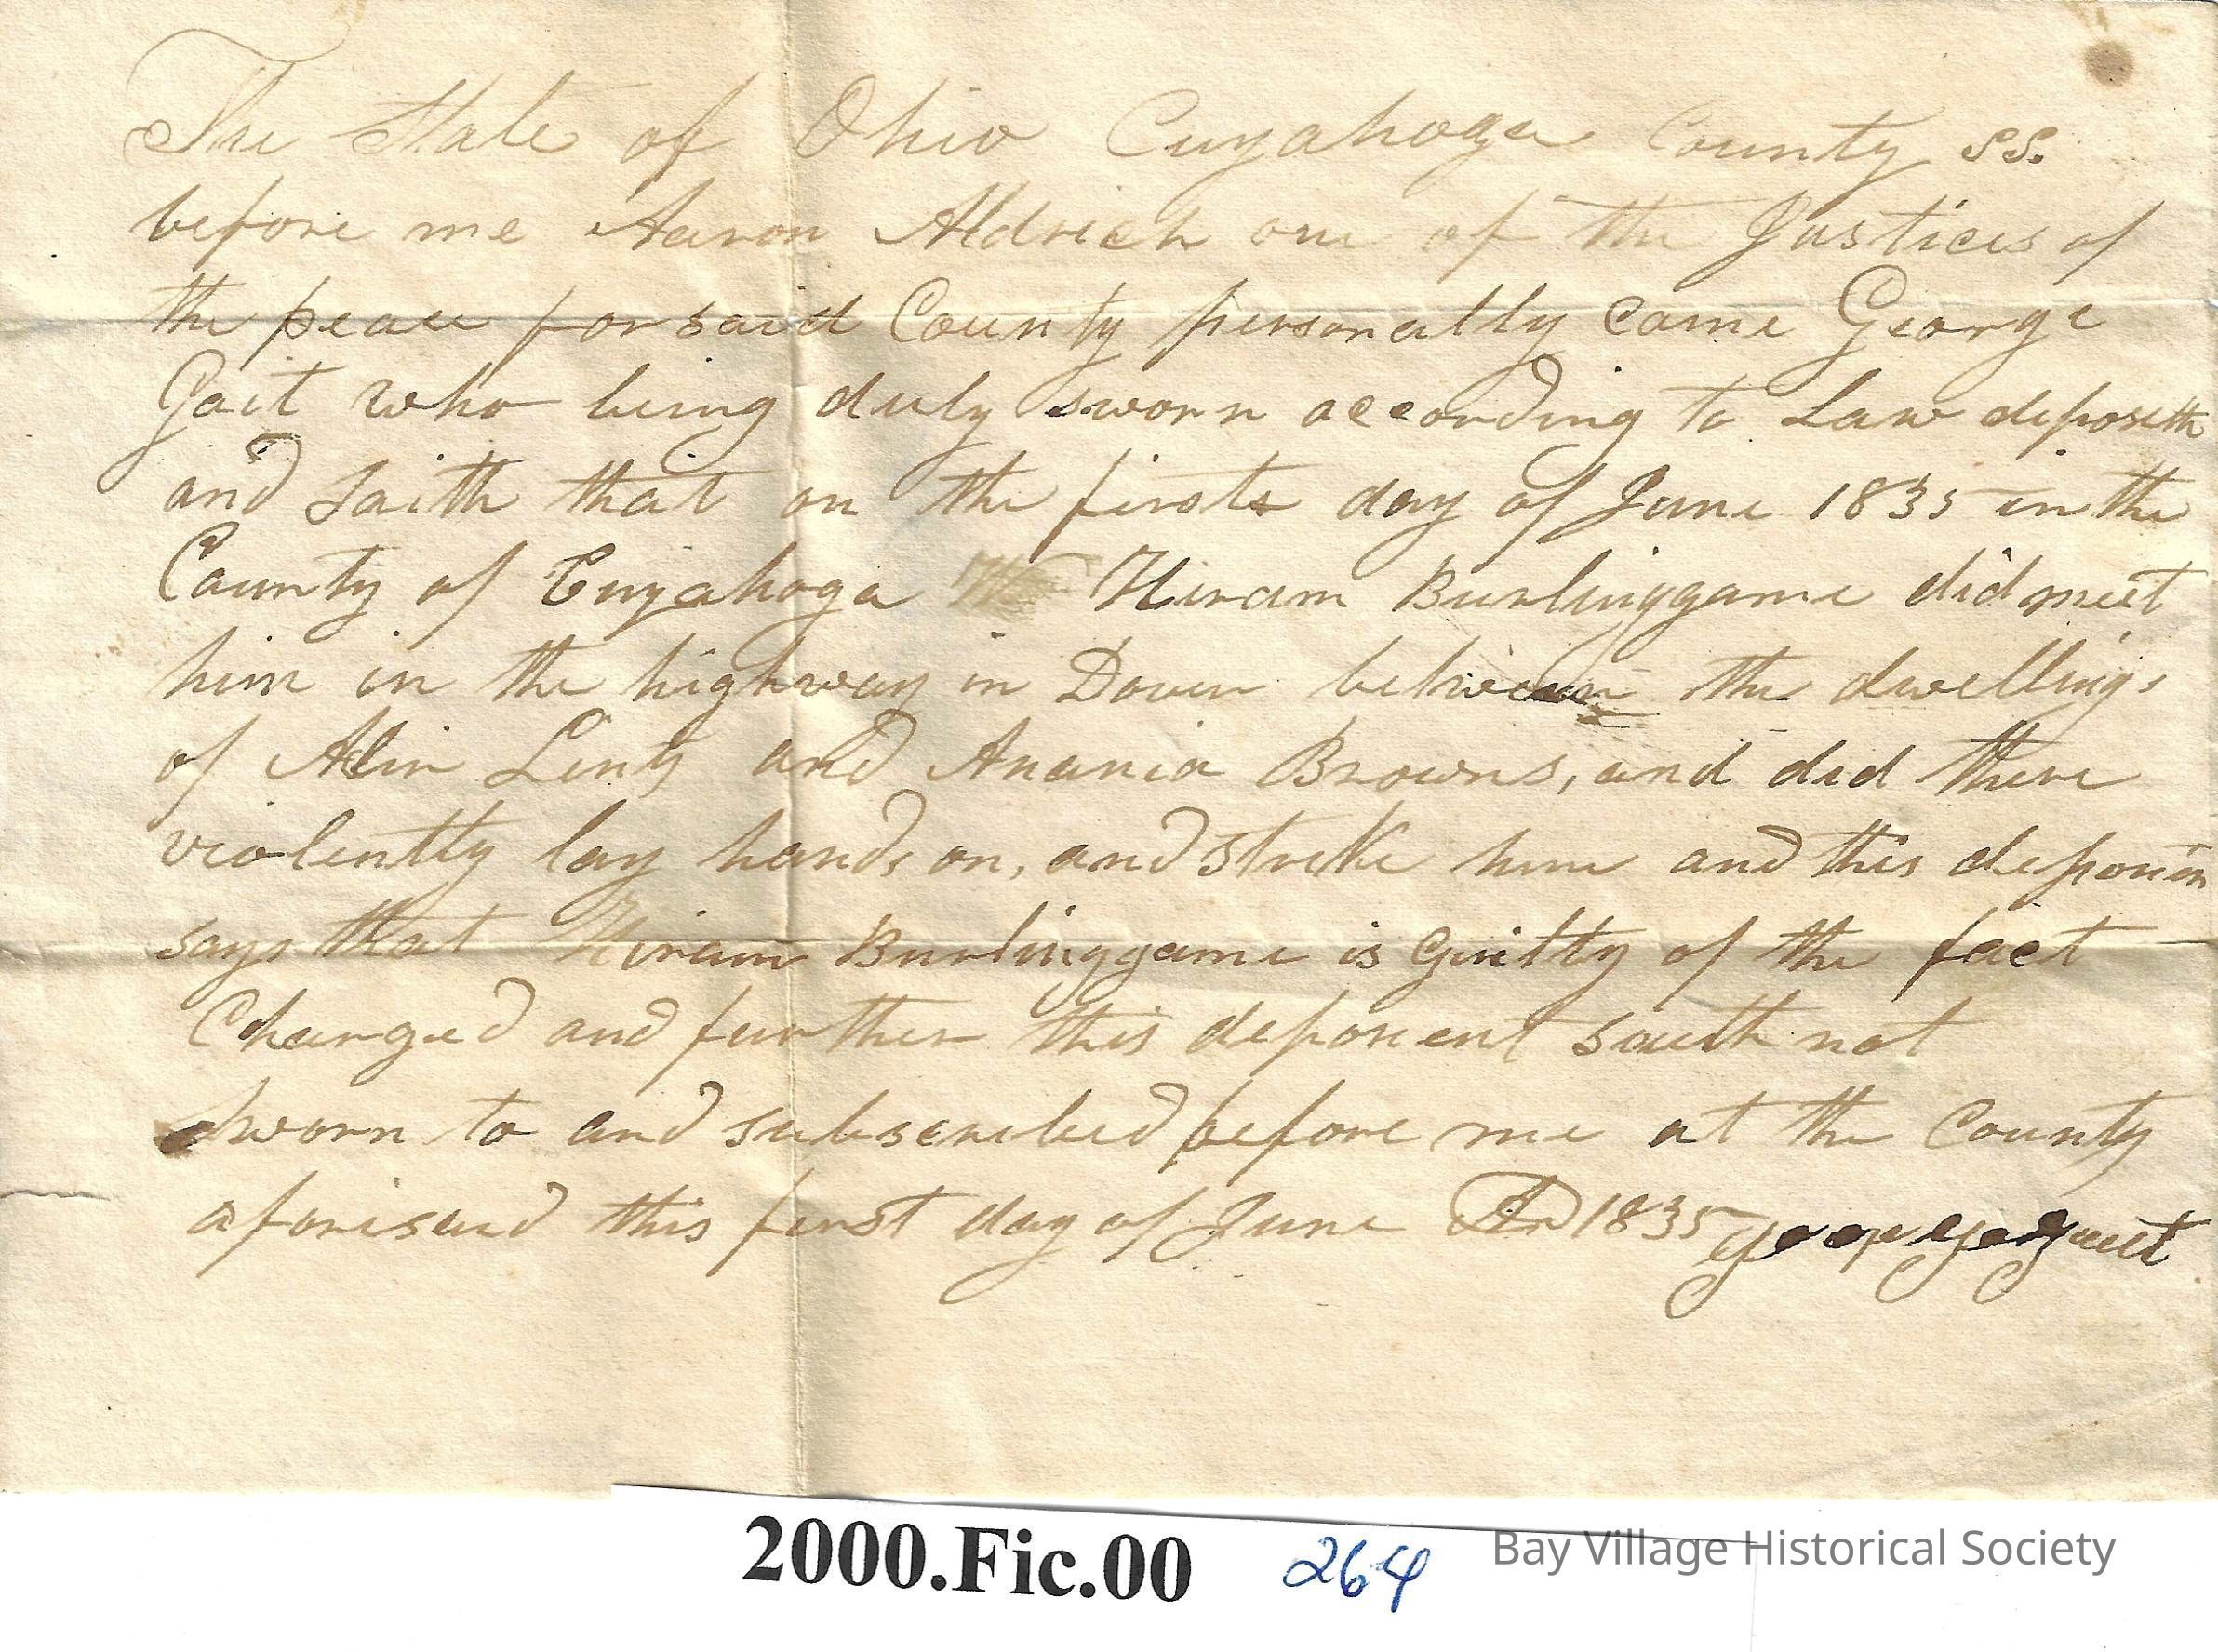 The State of Ohio Cuyahoga County SS.
before me Aaron Aldrich one of the Justices of
the peace for said County personally came George
Gait who being duly sworn according to Law deposeth
and Saith that on the firsts day of June 1835 in the
County of Cuyahoga Hiram Burlinggame did meet
him in the highway in Dover between the dwellings
of Lents and Anania Browns, and did there
violently lay hands on, and strike him and this deponen
says that Hiram Burlinggame is Guilty of the fact
Charged and further this deponent saith not
Sworn to and subscribed before me at the County
aforisaid this first day of June AD 1835
2000.Fic.00 264
Bay Village Historical Society